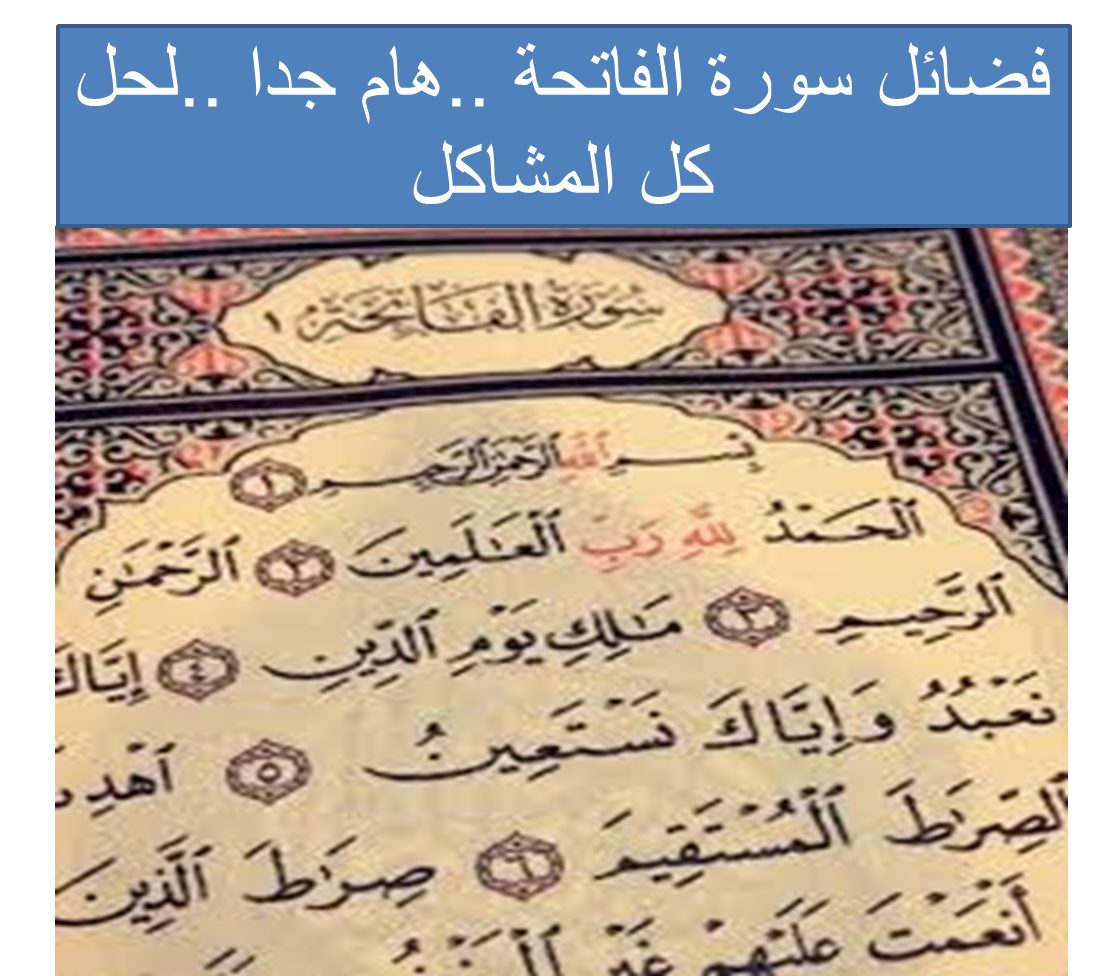 فضائل سورة الفاتحة ..هام جدا ..لحل
كل المشاكل
سُورَةُ الْفَاتِحَةِ ١
بِسْمِ ٱللَّهِ ٱلرَّحْمَٰنِ ٱلرَّحِيمِ ١
ٱلْحَمْدُ لِلَّهِ رَبِّ ٱلْعَٰلَمِينَ ٢ ٱلرَّحْمَٰنِ
ٱلرَّحِيمِ ٣ مَٰلِكِ يَوْمِ ٱلدِّينِ ٤ إِيَّاكَ
نَعْبُدُ وَإِيَّاكَ نَسْتَعِينُ ٥ ٱهْدِ
ٱلصِّرَٰطَ ٱلْمُسْتَقِيمَ ٦ صِرَٰطَ ٱلَّذِينَ
أَنْعَمْتَ عَلَيْهِمْ غَيْرِ